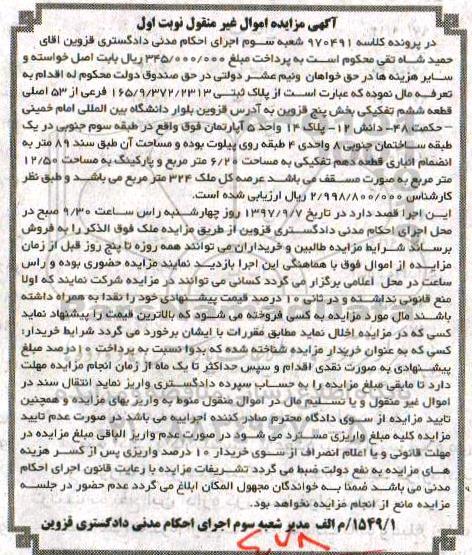 آگهی مزایده اموال غیر منقول نوبت اول
در پرونده کلاسه ۹۷۰۴۹۱ شعبه سوم اجرای احکام مدنی دادگستری قزوین آقای
حمید شاه تقی محکوم است به پرداخت مبلغ ۳۴۵/۰۰۰/۰۰۰ ریال بابت اصل خواسته و
سایر هزینه ها در حق خواهان ونیم عشر دولتی در حق صندوق دولت محکوم له اقدام به
تعرفه مال نموده که عبارت است از پلاک ثبتی ۱۶۵/۹/۳۷۲/۲۳۱۳ فرعی از ۵۳ اصلی
قطعه ششم تفکیکی بخش پنج قزوین به آدرس قزوین بلوار دانشگاه بین المللی امام خمینی
– حکمت ۴۸– دانش ۱۲– پلاک ۱۴ واحد ۵ آپارتمان فوق واقع در طبقه سوم جنوبی در یک
طبقه ساختمان جنوبی ۸ واحدی ۴ طبقه روی پیلوت بوده و مساحت آن طبق سند ۸۹ متر به
انضمام انباری قطعه دهم تفکیکی به مساحت ۶/۲۰ متر مربع و پارکینگ به مساحت ۱۲/۵۰
متر مربع به صورت مسقف می باشد عرصه کل ملک ۳۲۴ متر مربع می باشد و طبق نظر
کارشناس ۲/۹۹۸/۸۰۰/۰۰۰ ریال ارزیابی شده است.
این اجرا قصد دارد در تاریخ ۱۳۹۷/۹/۷ روز چهارشنبه راس ساعت ۹/۳۰ صبح در
محل اجرای احکام مدنی دادگستری قزوین از طریق مزایده ملک فوق الذکر را به فروش
برساند شرایط مزایده طالبین و خریداران می توانند همه روزه تا پنج روز قبل از زمان
مزایده از اموال فوق با هماهنگی این اجرا بازدید نمایند مزایده حضوری بوده و راس
ساعت در محل اعلامی برگزار می گردد کسانی می توانند در مزایده شرکت نمایند که اولا
منع قانونی نداشته و در ثانی ۱۰ درصد قیمت پیشنهادی خود را نقدا به همراه داشته
باشند مال مورد مزایده به کسی فروخته می شود که بالاترین قیمت را پیشنهاد نماید
کسی که در مزایده اخلال نماید مطابق مقررات با ایشان برخورد می گردد شرایط خریدار:
کسی که به عنوان خریدار مزایده شناخته شده که بدوا نسبت به پرداخت ۱۰ درصد مبلغ
پیشنهادی به صورت نقدی اقدام و سپس حداکثر تا یک ماه از زمان انجام مزایده مهلت
دارد تا مابقی مبلغ مزایده را به حساب سپرده دادگستری واریز نماید انتقال سند در
اموال غیر منقول و یا تسلیم مال در اموال منقول منوط به واریز بهای مزایده و همچنین
تایید مزایده از سوی دادگاه محترم صادر کننده اجراییه می باشد در صورت عدم تایید
مزایده کلیه مبلغ واریزی مسترد می شود در صورت عدم واریز الباقی مبلغ مزایده در
مهلت قانونی و یا اعلام انصراف از سوی خریدار ۱۰ درصد واریزی پس از کسر هزینه
های مزایده به نفع دولت ضبط می گردد تشریفات مزایده با رعایت قانون اجرای احکام
مدنی می باشد ضمنا به خواندگان مجهول المکان ابلاغ می گردد عدم حضور در جلسه
مزایده مانع از انجام مزایده نخواهد بود.
۱۵۴۹/۱/م الف مدیر شعبه سوم اجرای احکام مدنی دادگستری قزوین